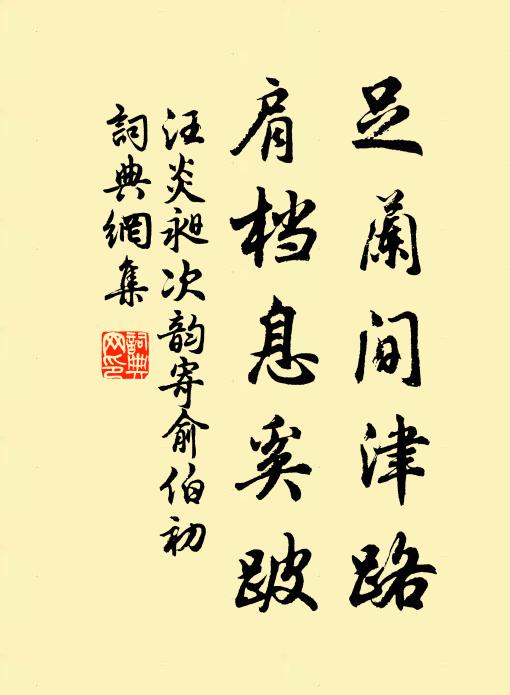 足蘭间津路
肩档息奚跛
汪炎昶次韵寄俞伯初
詞典網集
詞典網印